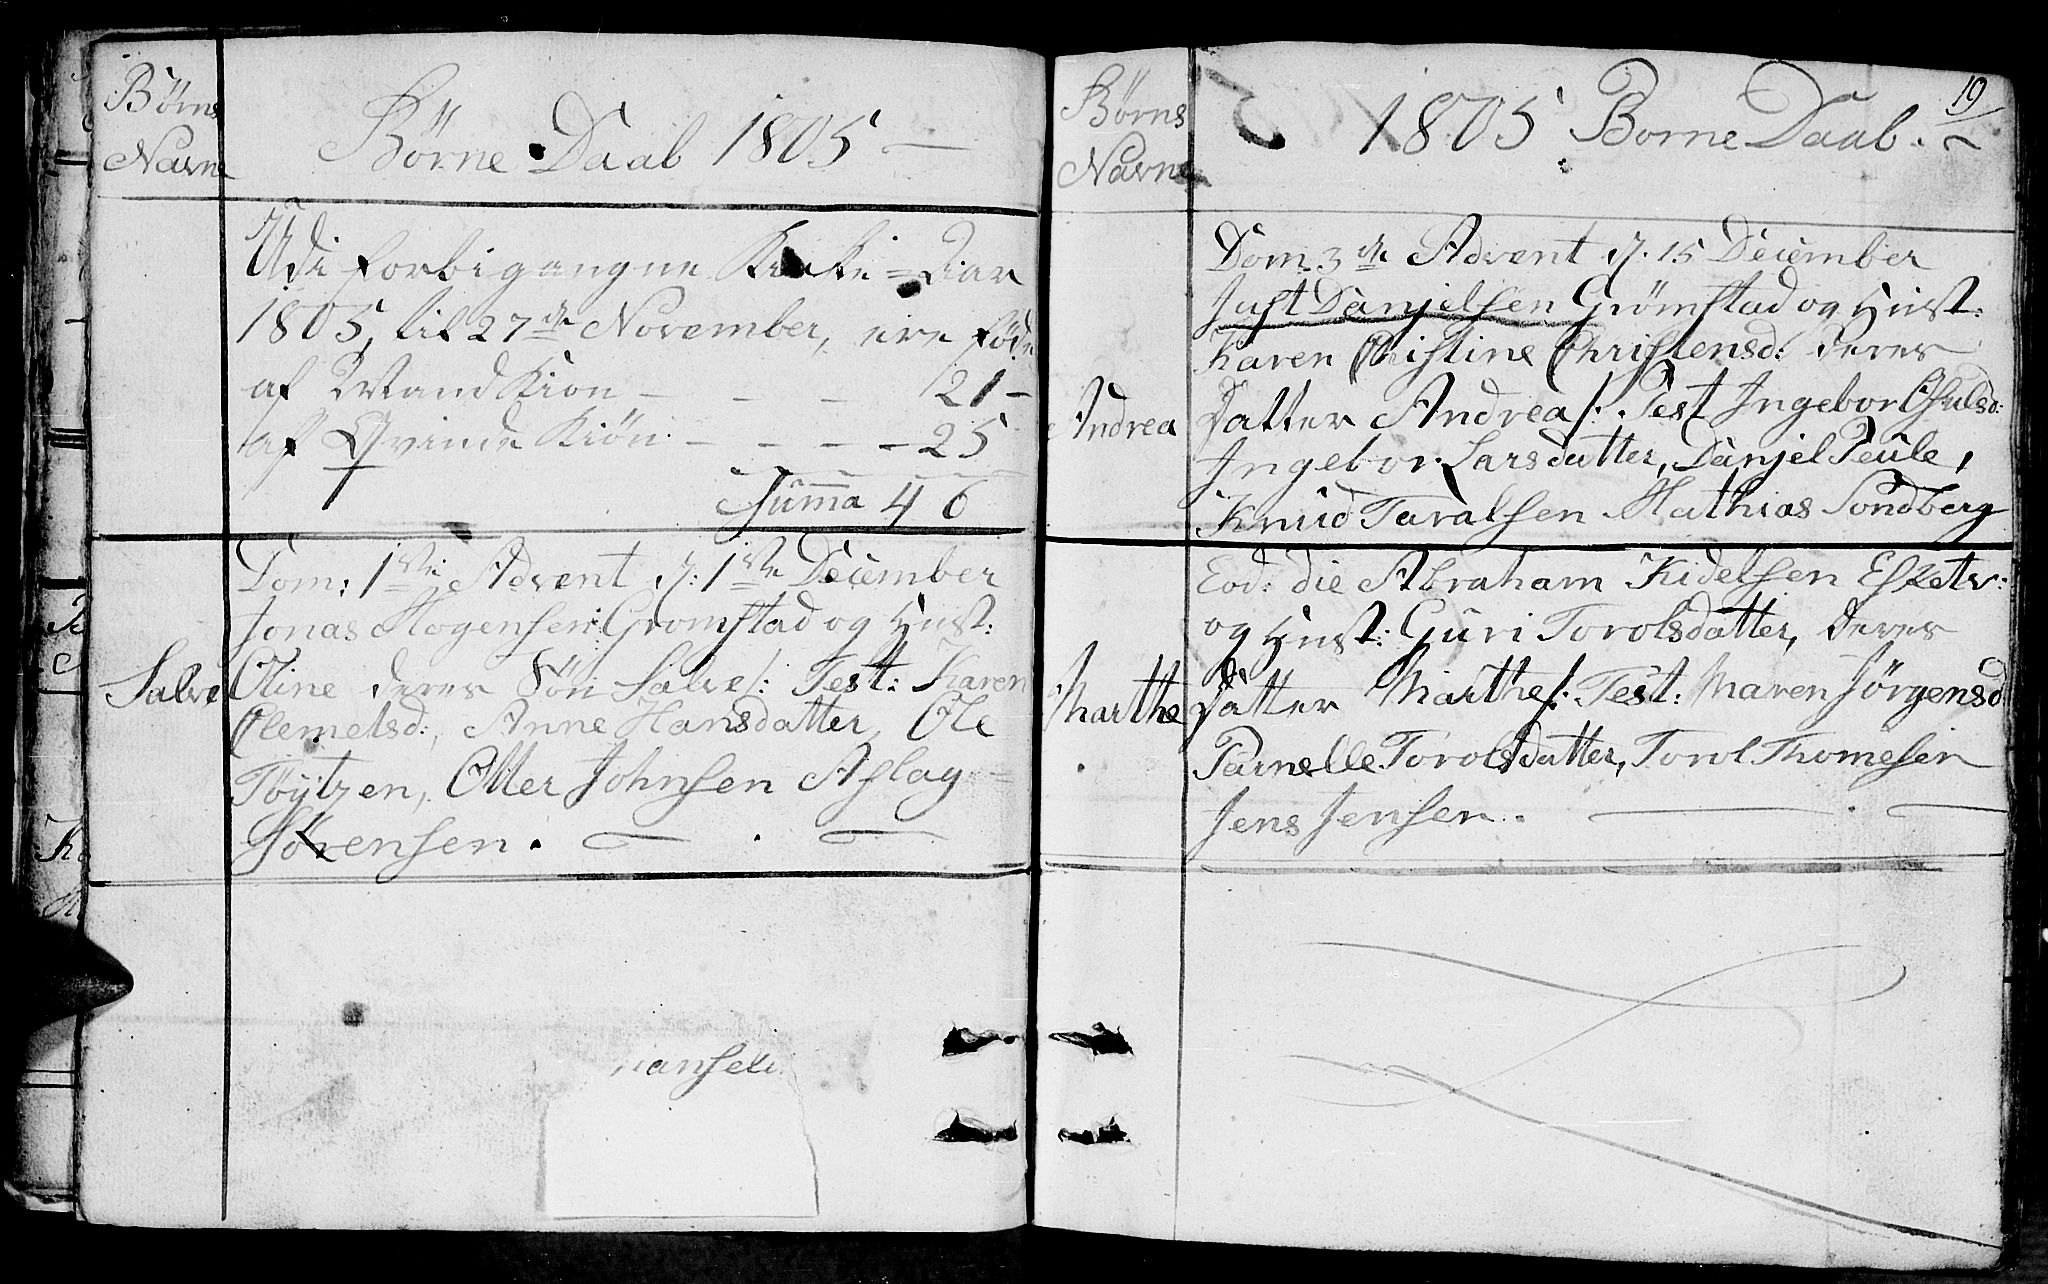 Børns
Navne
Börne Daab 1805
Udi forbigangne Kirke=Aar
1805, til 27de November, ere föde
af MandKion - - - 21 -
af Qvinde Kiön - - - - 25
Summa 46
Dom: 1ste Advent d: 1ste December
Jonas Mogensen Gromstad og Hust:
Salve
Oline deres Sön Salve/: Test: Karen
Clemetsd:, Anne Hansdatter, Ole
Töÿtzen, Otter Johnsen Aslag=
Sörensen.
19
Børns
Navne
1805 Borne Daab.
Dom. 3de Advent d. 15 December
Just Danjelsen Grömstad og Hust:
Karen Christine Christensd: deres
Andrea
Datter Andrea/: Test Ingebor
Ingebor Larsdatter, Danjel Peüle,
Knüd Taralsen Mathias Sondberg
Eod: die Abraham Kidelsen
og Hust: Güri Torolsdatter, deres
Marthe
Datter Marthe/: Test: Maren Jörgensd:
Parnelle Torolsdatter, Torol Thomesen
Jens Jensen.